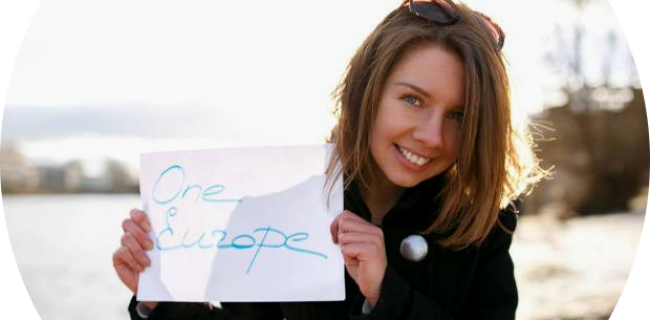 One
Europe